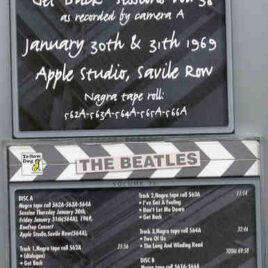 Get Back Sessions Vol 38
as recorded by camera A
January 30th & 31th 1969
Apple Studio, Savile Row
Nagra tape roll:
562A-563A-564A-565A-566A
Yellow Dog
THE BEATLES
VOLUME
DISC A
Nagra roll 562A-563A-564A
Session Thursday January 30th,
Friday January 31th(564A), 1969,
Rooftop Concert
Apple Studio, Savile Row(564A).
Track 1,Nagra tape roll 562A 21:56
• (dialogue)
• Get Back
Track 2,Nagra tape roll 563A 11:14
• I've Got A Feeling
• Don't Let Me Down
• Get Back
Track 3,Nagra tape roll 564A 32:46
• Two Of Us
• The Long And Winding Road
TOTAL 69:58
DISC B